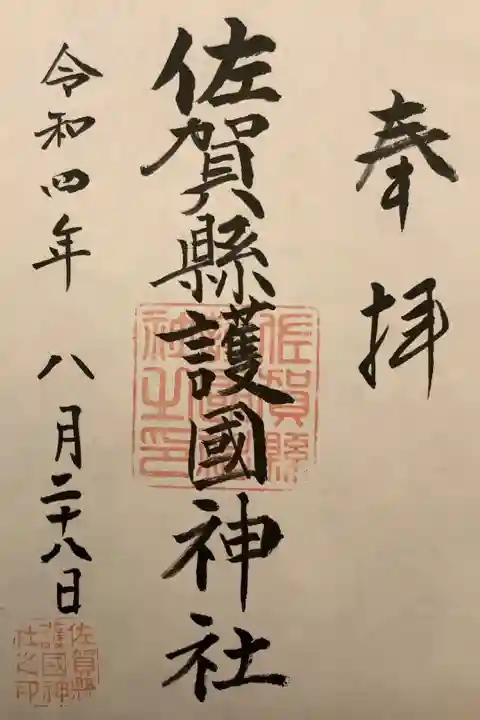 奉拝
佐賀縣護國神社
佐賀縣護國神社之印
令和四年八月二十八日
佐賀縣護國神社之印